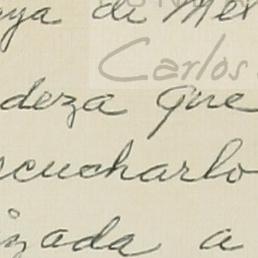 aya de Mer
Carlos
deza que
scucharlo
izada a